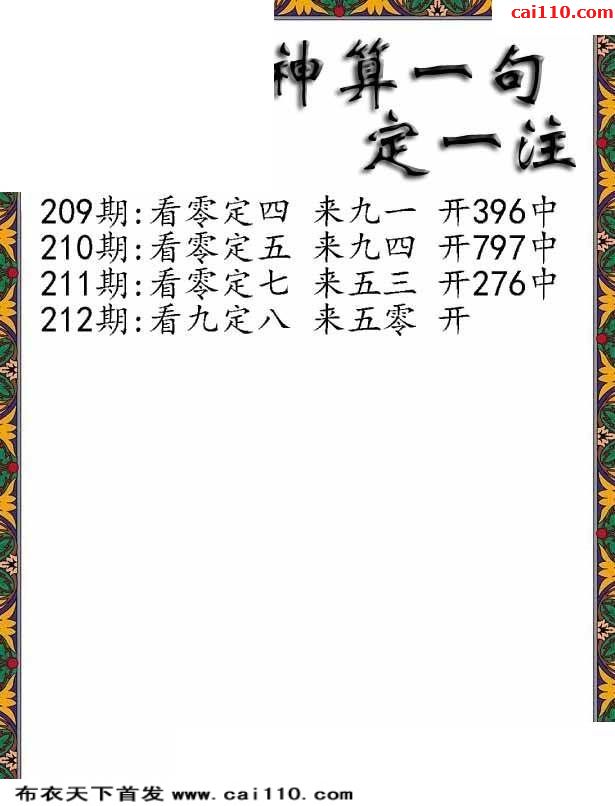 cai110.com
神算一句
定一注
209期:看零定四 来九一 开396中
210期:看零定五 来九四 开797中
211期:看零定七 来五三 开276中
212期:看九定八 来五零 开
布衣天下首发 www.cai110.com